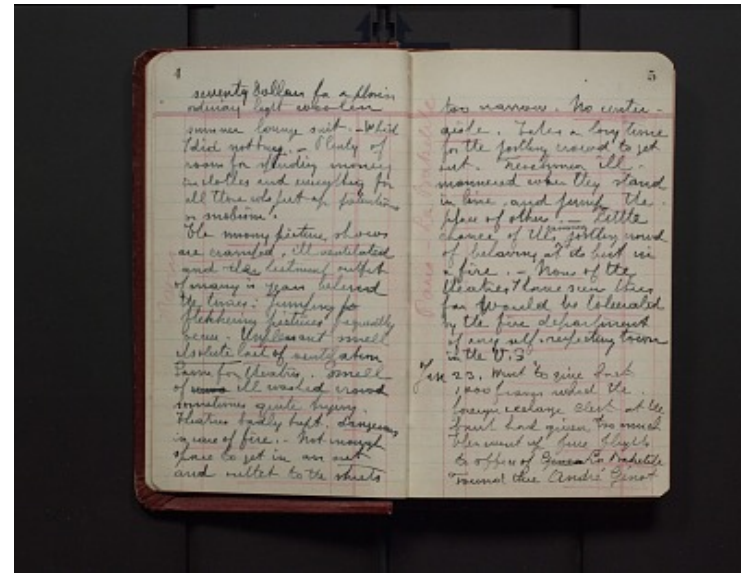 4
seventy dollars for a
ordinary light woolen
summer lounge suit. - Which
I did not buy. - Plenty of
room for spending money
on clothes and everything for
all those who put up
or snobism.
The moving picture shows
are cramped, ill ventilated
and the outfit
of many is years behind
the times: jumping
flickering pictures frequently
seen. Unpleasant smell
absolute lack of ventilation
Same for theatres. Smell
of ill washed crowd
sometimes quite trying.
Theatres badly kept. dangerous
in case of fire. - Not enough
space to get in an out
and outlet to the streets
5
too narrow. No center-
aisle. Takes a long time
for the jostling crowd to get
out. Frenchmen ill-
mannered when they stand
in line and jump the
place of others. - Little
chance of the jostling crowd
of behaving at its best in
a fire. - None of the
theatres I have seen thus
far would be tolerated
by the fire department
of any self-respecting town
in the U.S
Jan 23. Went to give back
1000 francs which the
foreign exchange clerk at the
bank had given too much
Then went up five flights
to office of Co Bakelite
Found there André Genot
Paris - La Bakelite